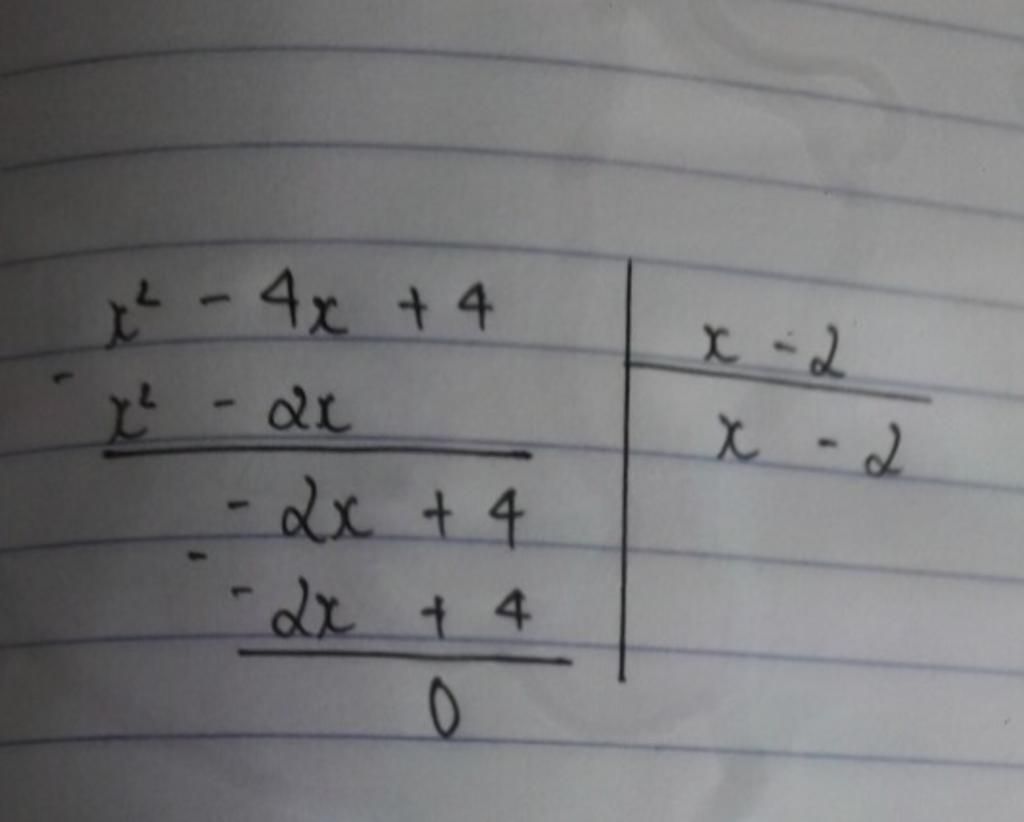 x² - 4x + 4
x - 2
- x² - 2x
x - 2
- 2x + 4
- - 2x + 4
0